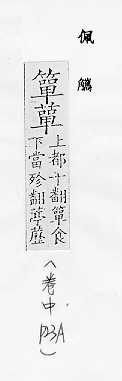 佩觿
簞蕇
上都干翻簞食
下當殄翻葶藶
(卷中 P23A)